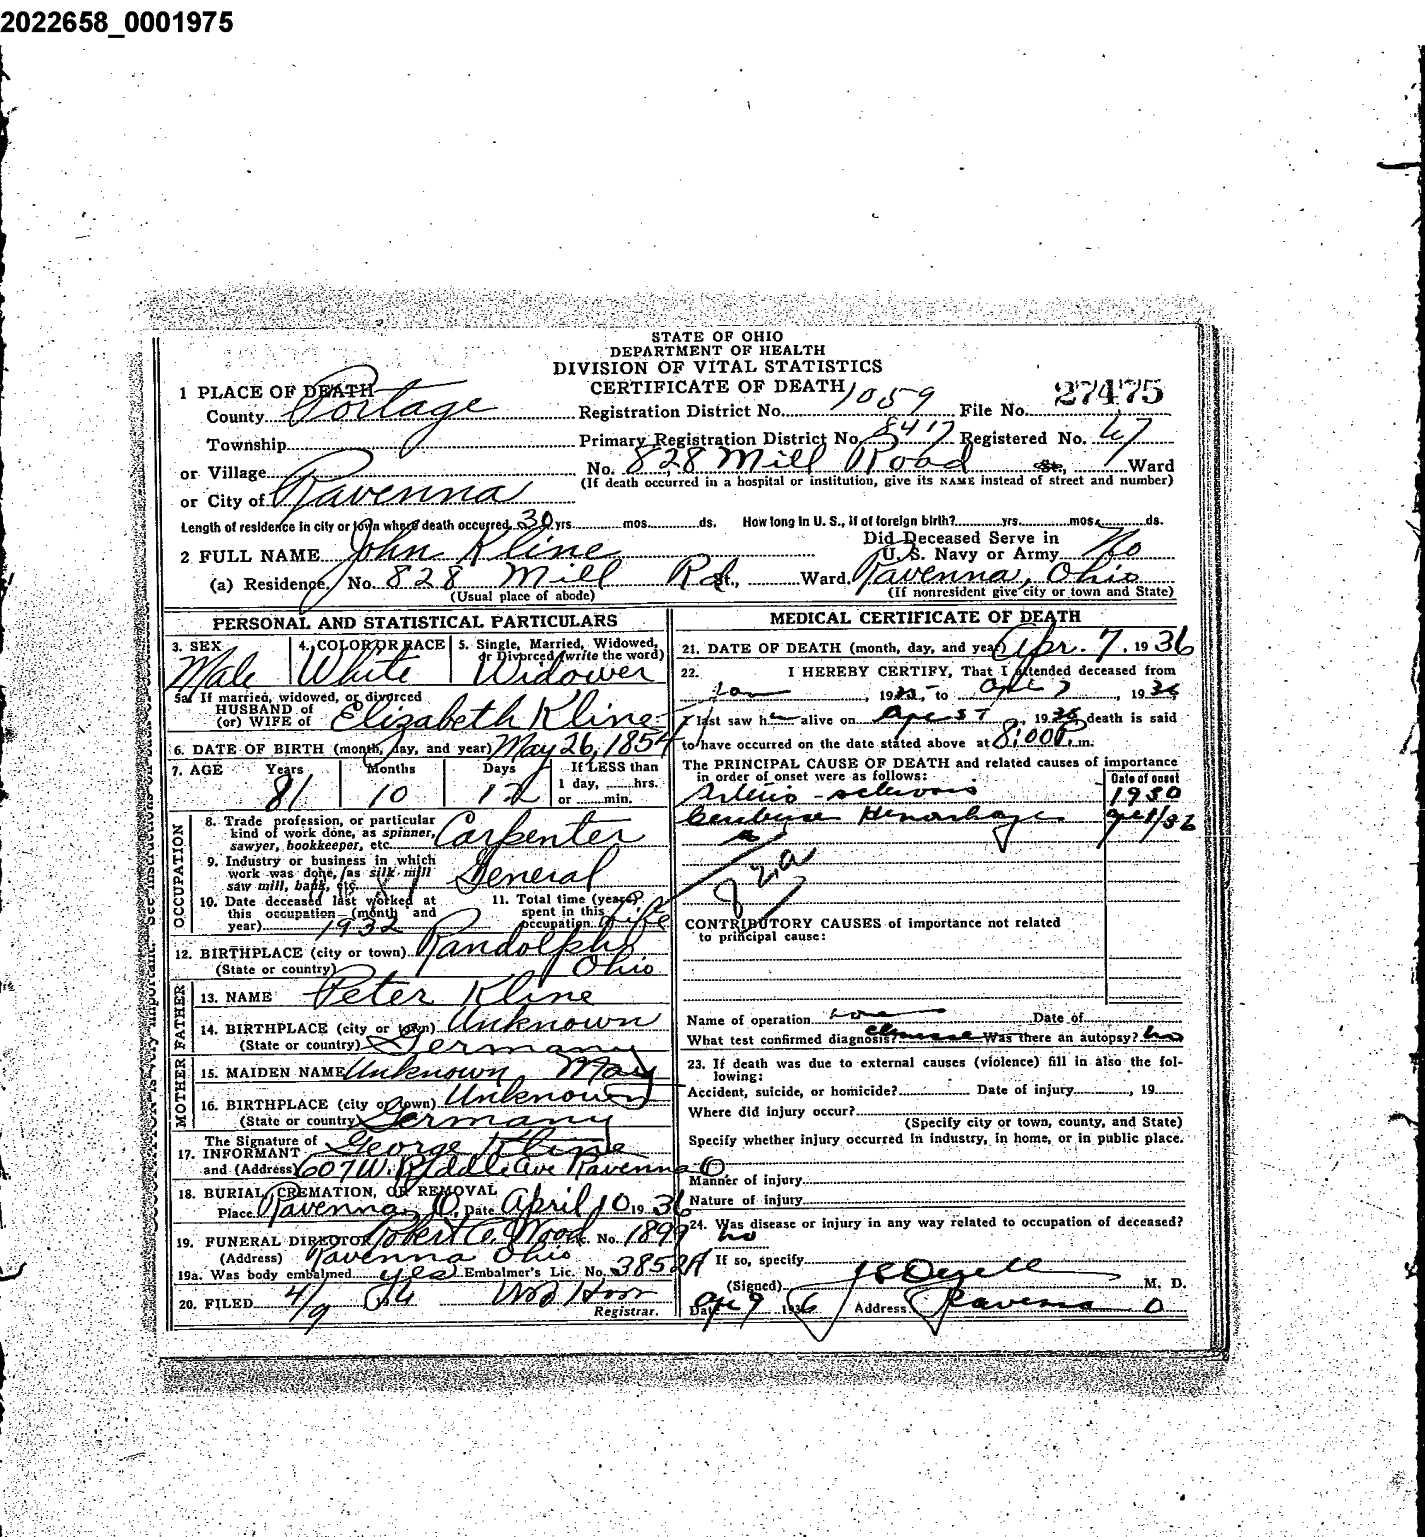 2022658_0001975
STATE OF OHIO
DEPARTMENT OF HEALTH
DIVISION OF VITAL STATISTICS
CERTIFICATE OF DEATH
1 PLACE OF DEATH
County Portage Registration District No. 1059 File No. 27475
Township Primary Registration District No. 8417 Registered No. 67
or Village No. 828 Mill Road St., Ward
or City of Ravenna (If death occurred in a hospital or institution, give its NAME instead of street and number)
Length of residence in city or town where death occurred 30 yrs. mos. ds. How long in U. S., if of foreign birth? yrs. mos. ds.
2 FULL NAME John Kline Did Deceased Serve in U. S. Navy or Army No
(a) Residence. No. 828 Mill Rd St., Ward. Ravenna, Ohio
(Usual place of abode) (If nonresident give city or town and State)
PERSONAL AND STATISTICAL PARTICULARS
3. SEX Male
4. COLOR OR RACE White
5. Single, Married, Widowed, or Divorced (write the word) Widower
5a. If married, widowed, or divorced
HUSBAND of
(or) WIFE of Elizabeth Kline
6. DATE OF BIRTH (month, day, and year) May 26, 1854
7. AGE Years 81 Months 10 Days 12 If LESS than
1 day, hrs.
or min.
OCCUPATION
8. Trade, profession, or particular
kind of work done, as spinner,
sawyer, bookkeeper, etc. Carpenter
9. Industry or business in which
work was done, as silk mill
saw mill, bank, etc. General
10. Date deceased last worked at
this occupation (month and
year) 1932
11. Total time (years)
spent in this
occupation Life
12. BIRTHPLACE (city or town) Randolph
(State or country) Ohio
FATHER
13. NAME Peter Kline
14. BIRTHPLACE (city or town) Unknown
(State or country) Germany
MOTHER
15. MAIDEN NAME Unknown May
16. BIRTHPLACE (city or town) Unknown
(State or country) Germany
17. The Signature of
INFORMANT George Kline
and (Address) 607 W. Riddle Ave Ravenna O
18. BURIAL, CREMATION, OR REMOVAL
Place Ravenna, O. Date April 10 1936
19. FUNERAL DIRECTOR Robert C. Wood Lic. No. 1899
(Address) Ravenna Ohio
19a. Was body embalmed yes Embalmer's Lic. No. 3852A
20. FILED 4/9
Registrar.
MEDICAL CERTIFICATE OF DEATH
21. DATE OF DEATH (month, day, and year) Apr. 7. 1936
22. I HEREBY CERTIFY, That I attended deceased from
Jan , 19 to , 1936
I last saw h alive on , 1936 death is said
to have occurred on the date stated above at 8:00 P. m.
The PRINCIPAL CAUSE OF DEATH and related causes of importance
in order of onset were as follows: Date of onset
Arterio-sclerosis 1930
Cerebral Hemorrhage
82a
CONTRIBUTORY CAUSES of importance not related
to principal cause:
Name of operation none Date of
What test confirmed diagnosis? Was there an autopsy? no
23. If death was due to external causes (violence) fill in also the following:
Accident, suicide, or homicide? Date of injury , 19
Where did injury occur?
(Specify city or town, county, and State)
Specify whether injury occurred in industry, in home, or in public place.
Manner of injury
Nature of injury
24. Was disease or injury in any way related to occupation of deceased?
no
If so, specify
(Signed) M. D.
Date 9 1936 Address Ravenna O